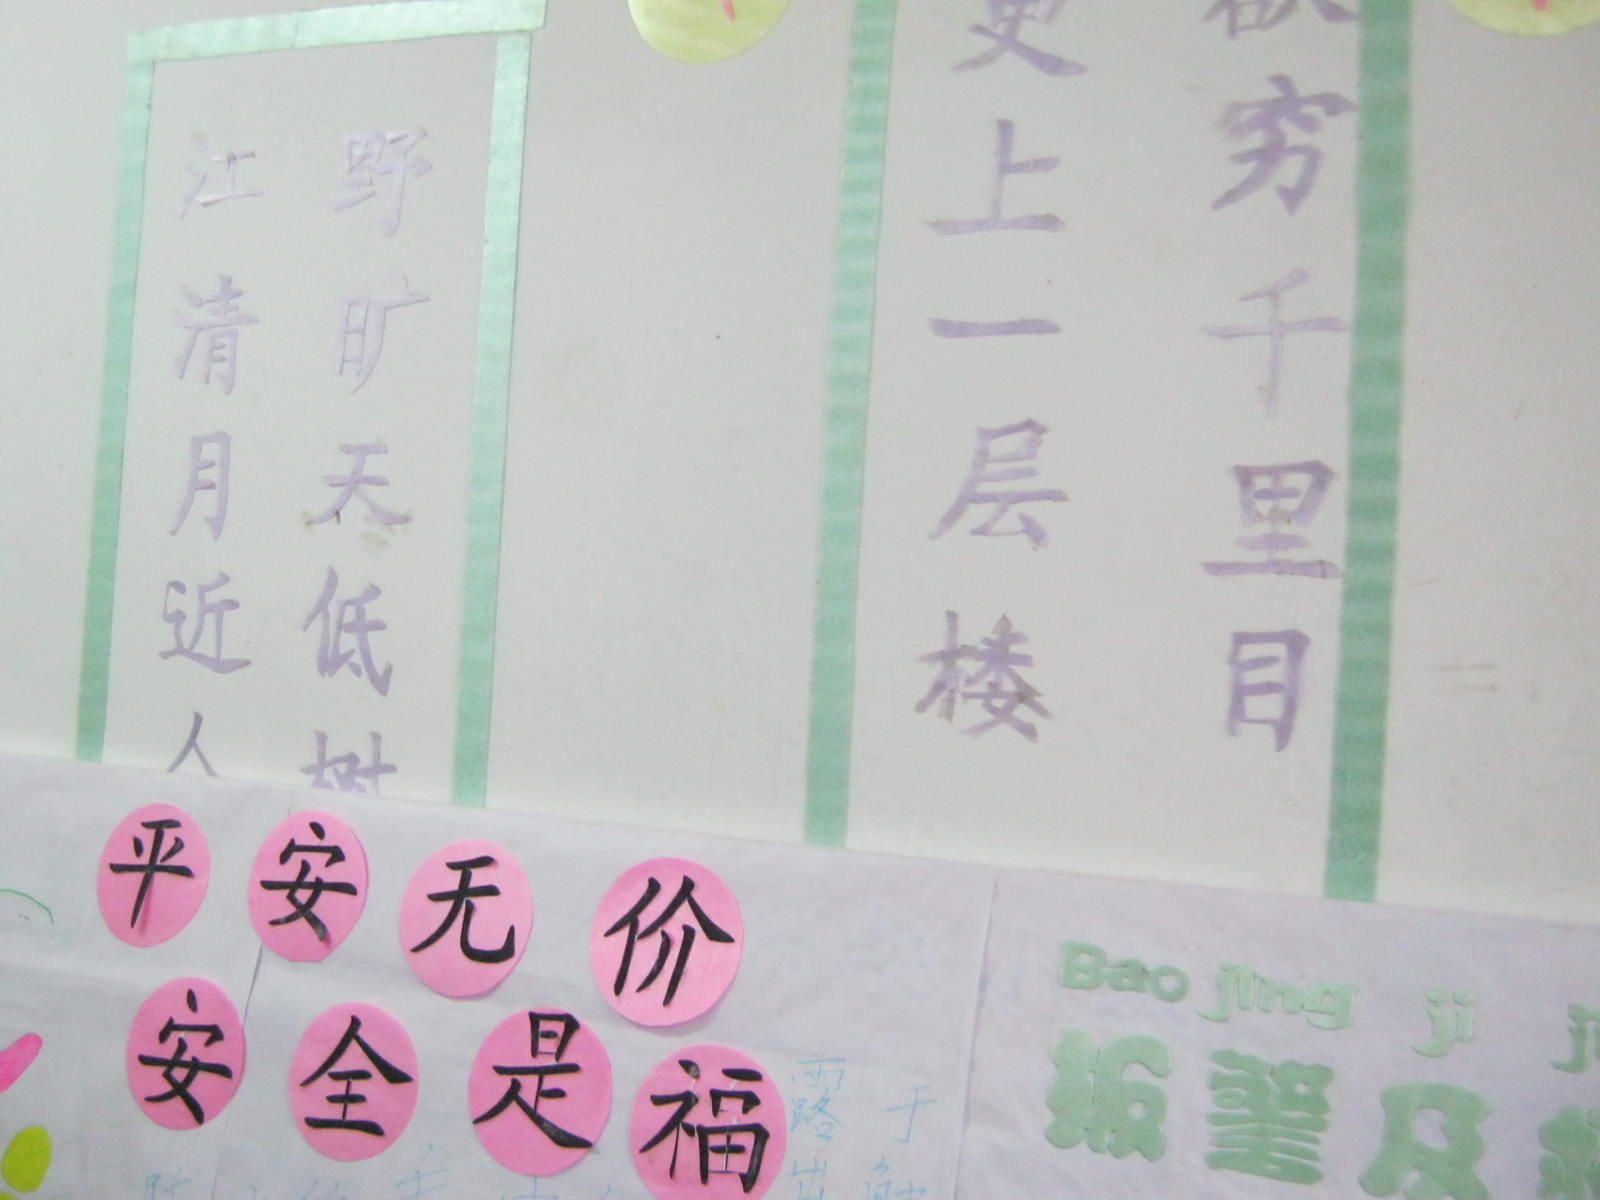 欲穷千里目
更上一层楼
野旷天低树
江清月近人
平安无价
安全是福
Bao jing ji
报警及
露